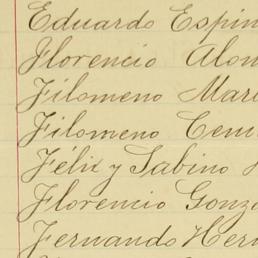 Eduardo Espin
Florencio Alon
Filomeno Mar
Filomeno Cen
Félix y Sabino
Florencio Gonz
Fernando Her